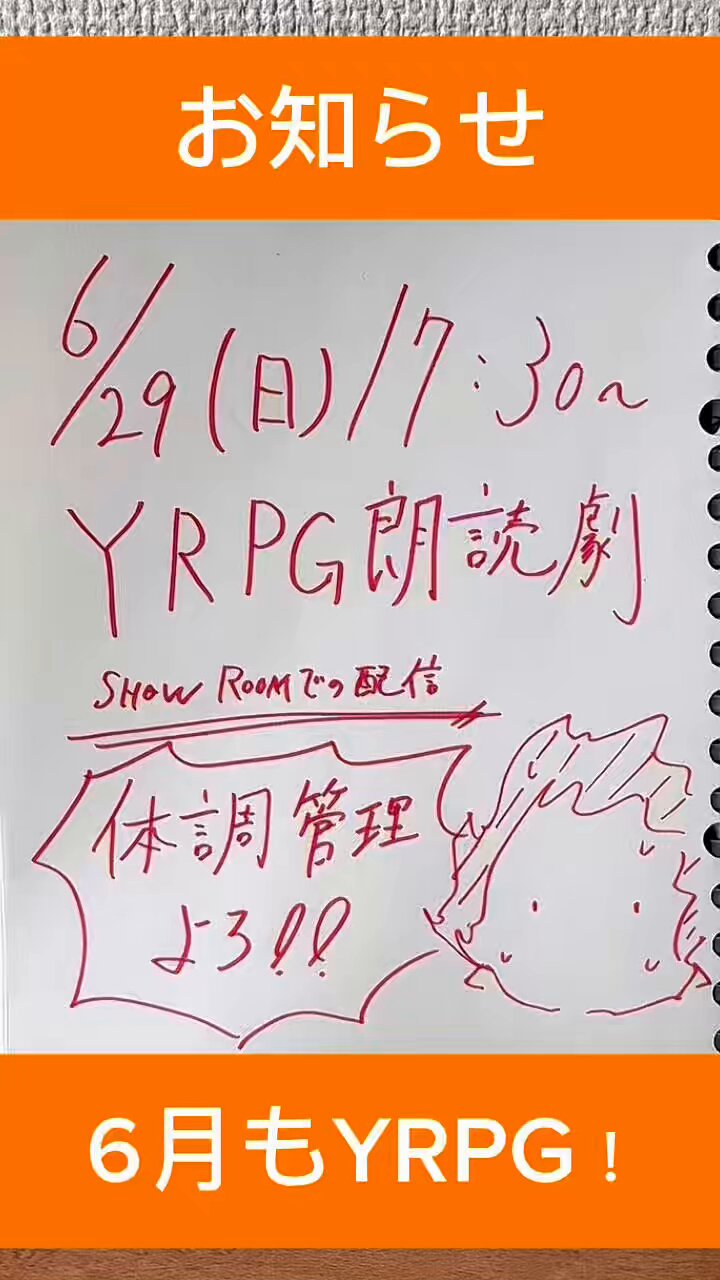 お知らせ
6/29(日)17:30～
YRPG朗読劇
SHOW ROOMでの配信
体調管理
よろ!!
6月もYRPG！